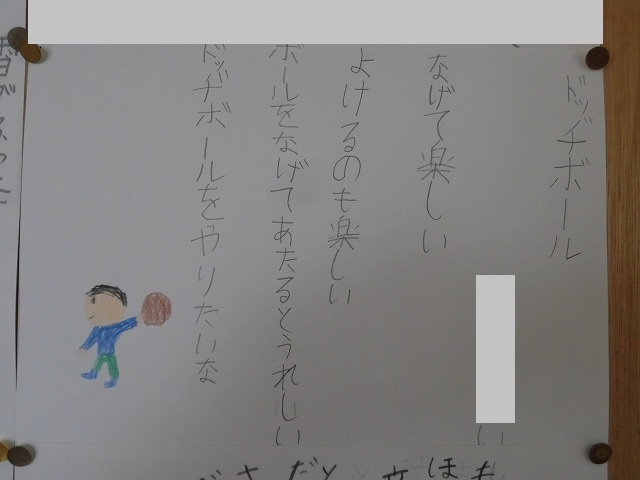 ドッヂボール
い
なげて楽しい
よけるのも楽しい
ボールをなげてあたるとうれしい
ドッヂボールをやりたいな